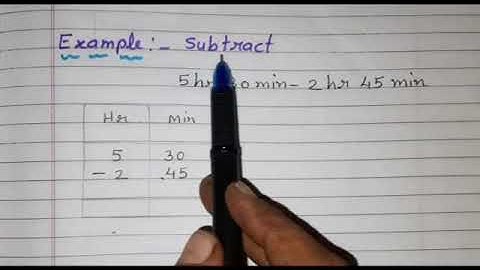 Example:- Subtract
5 hr 30 min - 2 hr 45 min
Hr min
5 30
- 2 .45